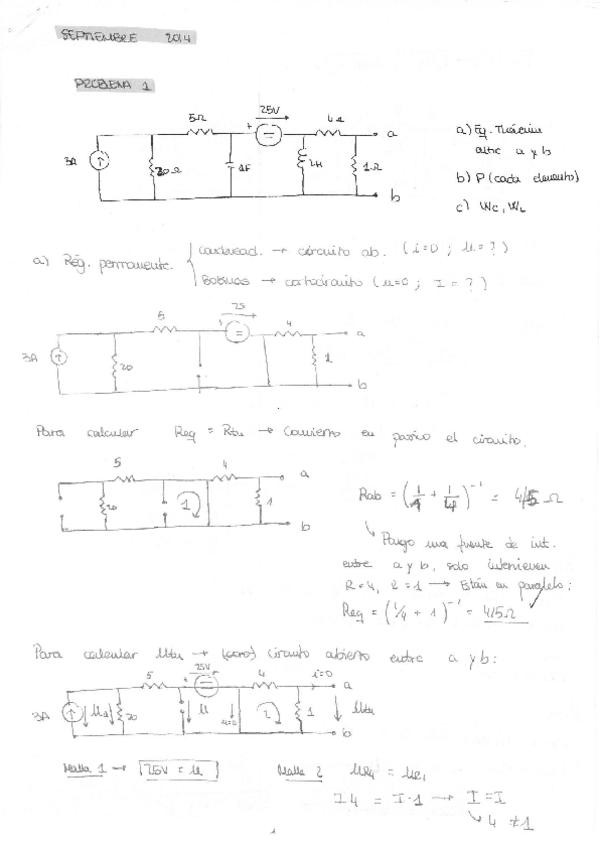 SEPTIEMBRE 2014
PROBLEMA 1
5Ω
+
25V
4Ω
a
3A
20Ω
1F
2H
1Ω
b
a) Eq. Thévenin
entre a y b
b) P (cada elemento)
c) Wc, WL
a) Rég. permanente.
Condensad. → circuito ab. (i=0 ; u=?)
Bobinas → cortocircuito (u=0 ; I=?)
5
25
4
a
3A
20
1
b
Para calcular Req = Rth → Convierto en pasivo el circuito.
5
4
a
20
1
1
b
Rab = (1/1 + 1/4)⁻¹ = 4/5 Ω
Pongo una fuente de int.
entre a y b, solo intervienen
R=4, R=1 → Están en paralelo:
Req = (1/4 + 1)⁻¹ = 4/5Ω
Para calcular Uth → circuito abierto entre a y b:
5
+
25V
4
i=0
a
3A
20
U
u=0
2
1
Uth
b
Malla 1 → 25V = U
Malla 2 UR4 = UR1
I4 = I·1 → I=I
4≠1
1